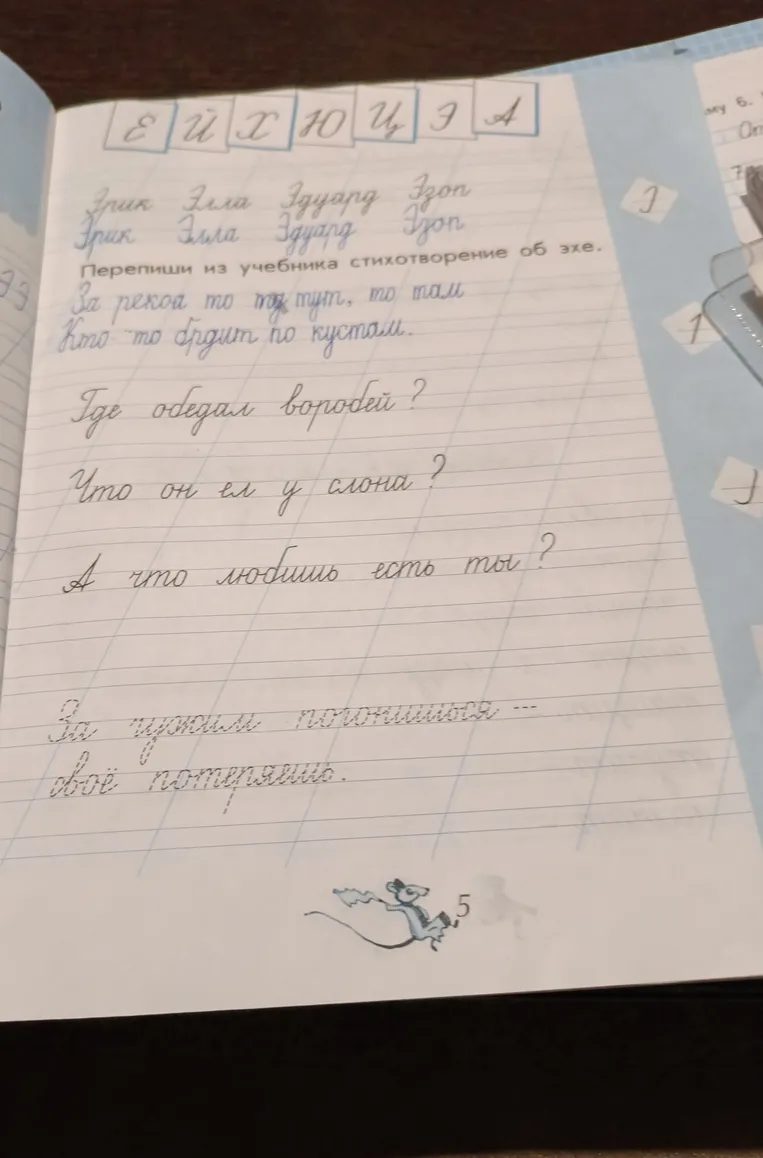 Е Й Х Ю Ц Э А
Эрик Элла Эдуард Эзоп
Эрик Элла Эдуард Эзоп
Перепиши из учебника стихотворение об эхе.
За рекоа то тут, то там
Кто-то брдит по кустам.
Где обедал воробей?
Что он ел у слона?
А что любишь есть ты?
За чужим погонишься ---
своё потеряешь.
5